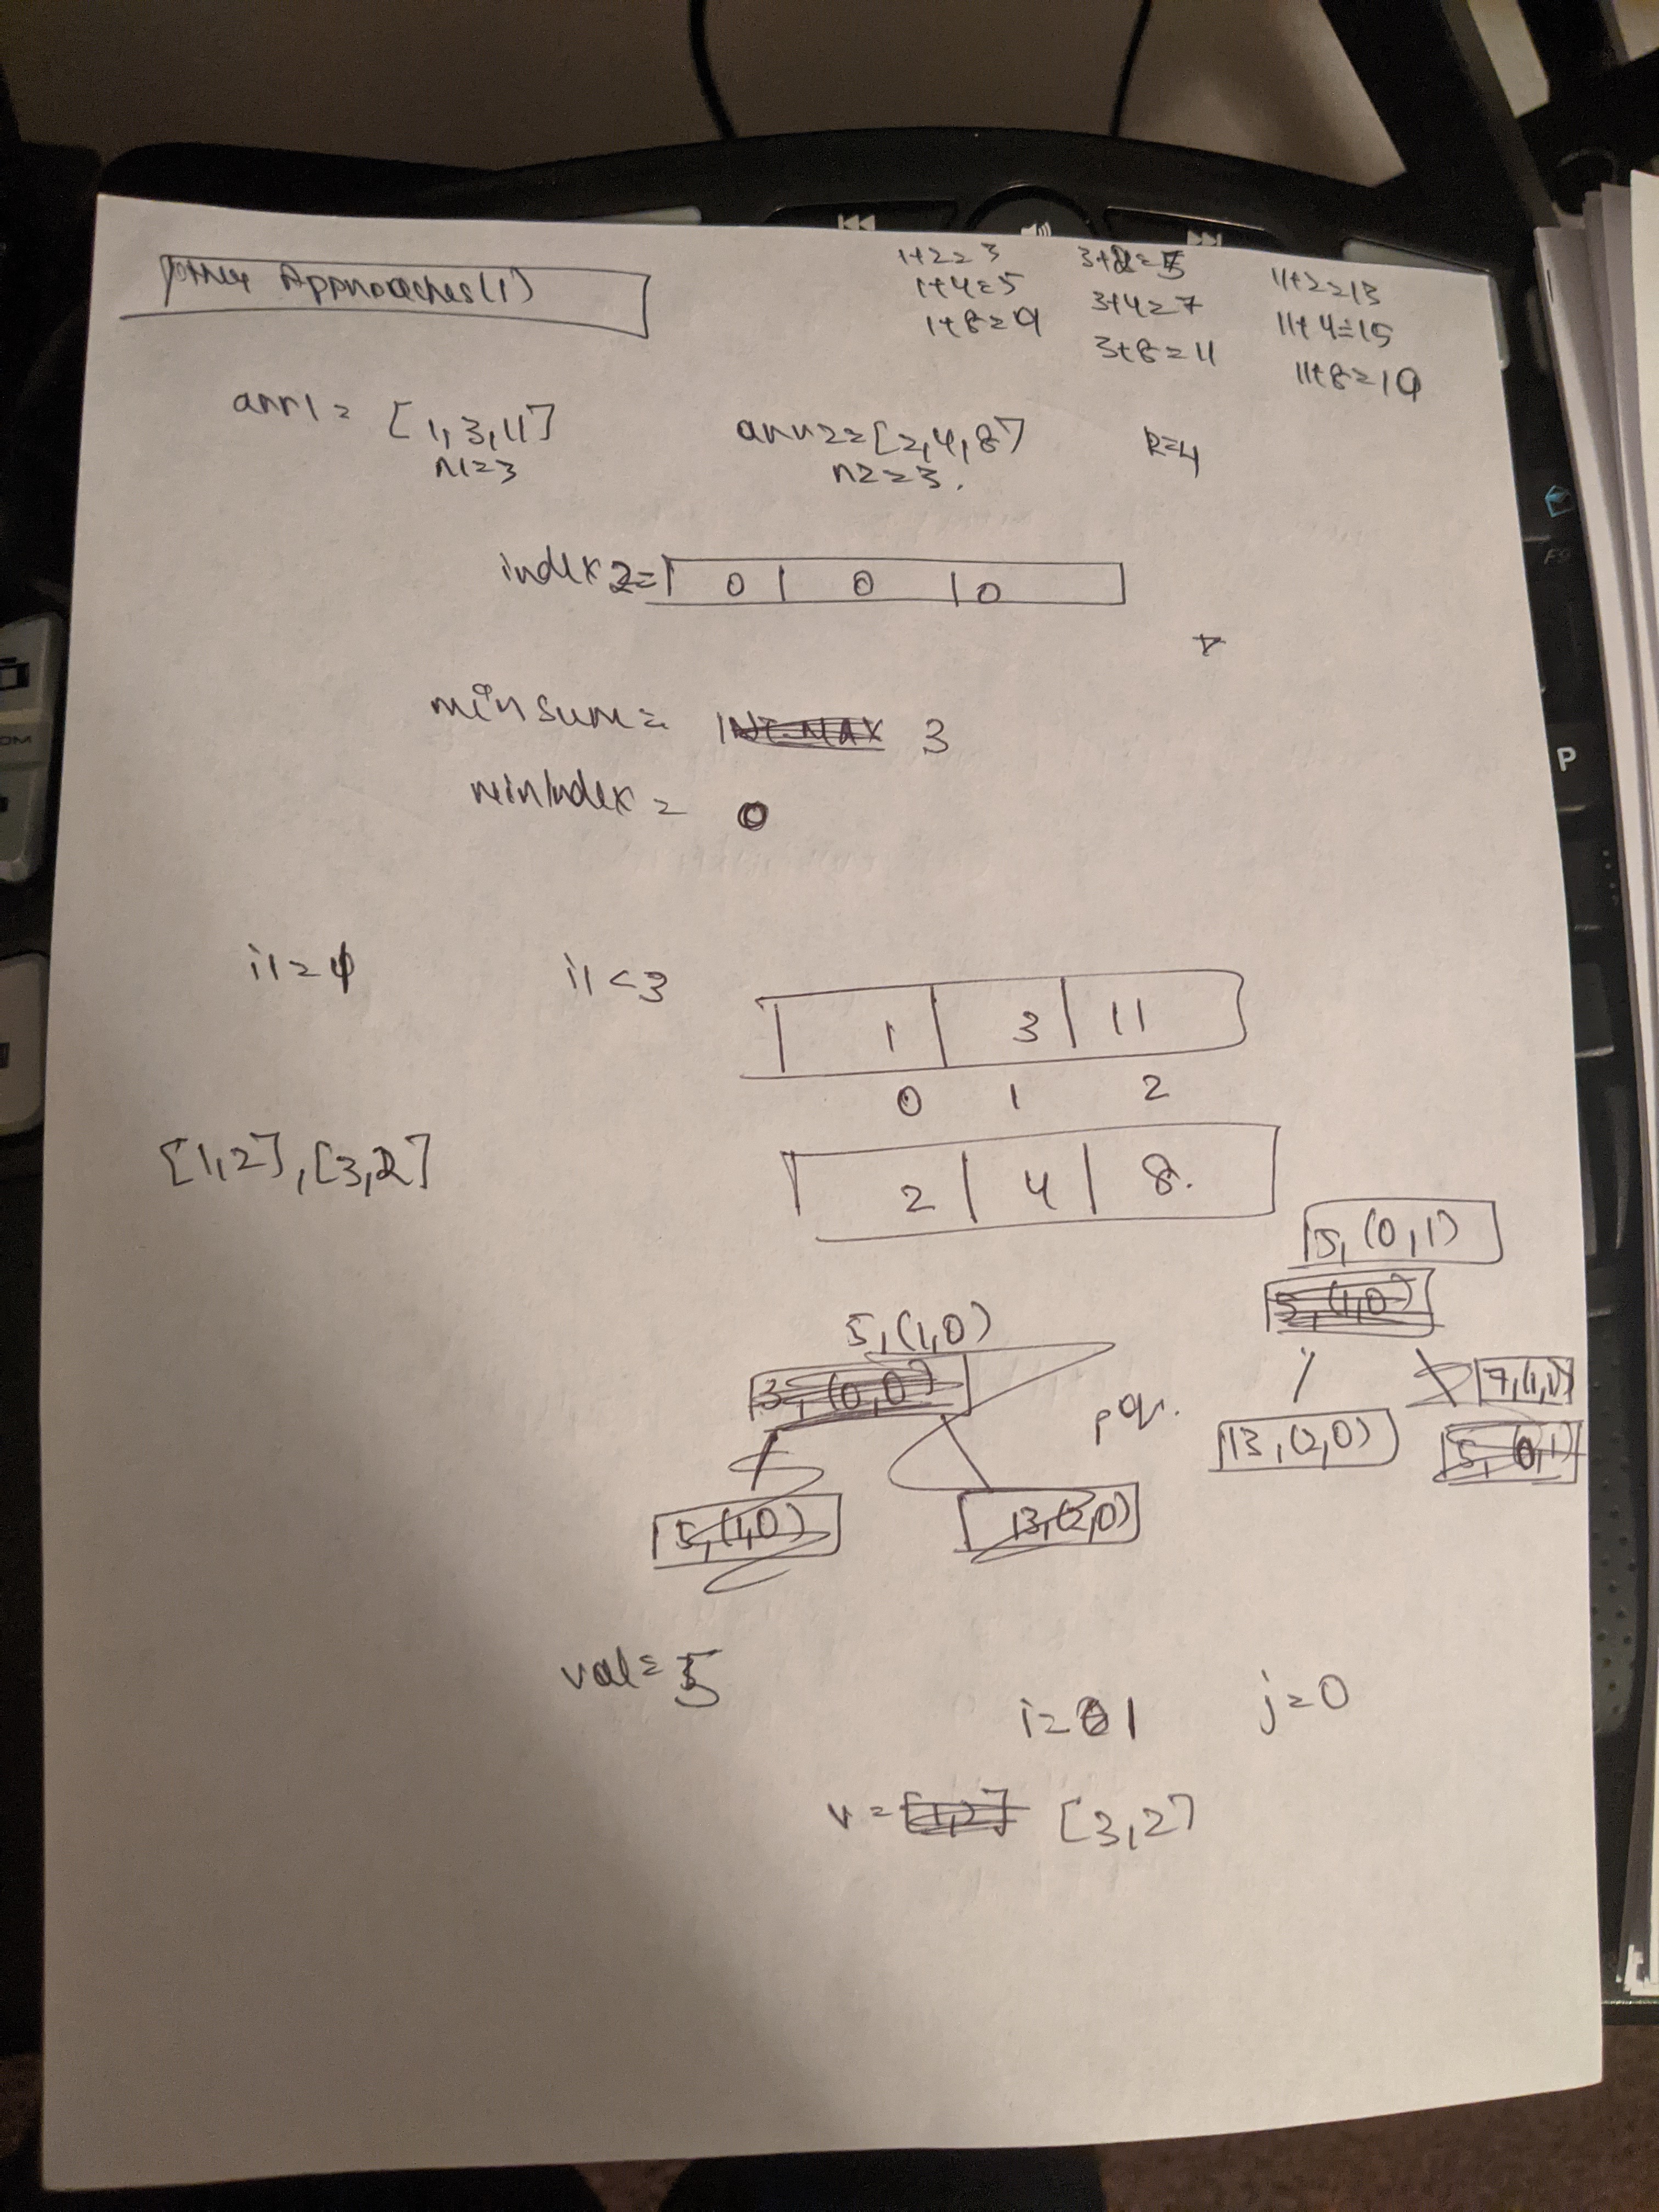 other Approaches(1)
1+2=3
1+4=5
1+8=9
3+2=5
3+4=7
3+8=11
11+2=13
11+4=15
11+8=19
arr1= [1,3,11]
n1=3
arr2=[2,4,8]
n2=3.
k=4
index2= 0 | 0 | 0
minsum= INT_MAX 3
minIndex= 0
i1= i1<3
1 | 3 | 11
0 1 2
[1,2],[3,2]
2 | 4 | 8.
5,(0,1)
5,(1,0)
5,(1,0)
3,(0,0)
7,(1,1)
pq.
13,(2,0)
5,(0,1)
5,(1,0)
13,(2,0)
val=5
i=0 1 j=0
v=[1,2] [3,2]
P
F9